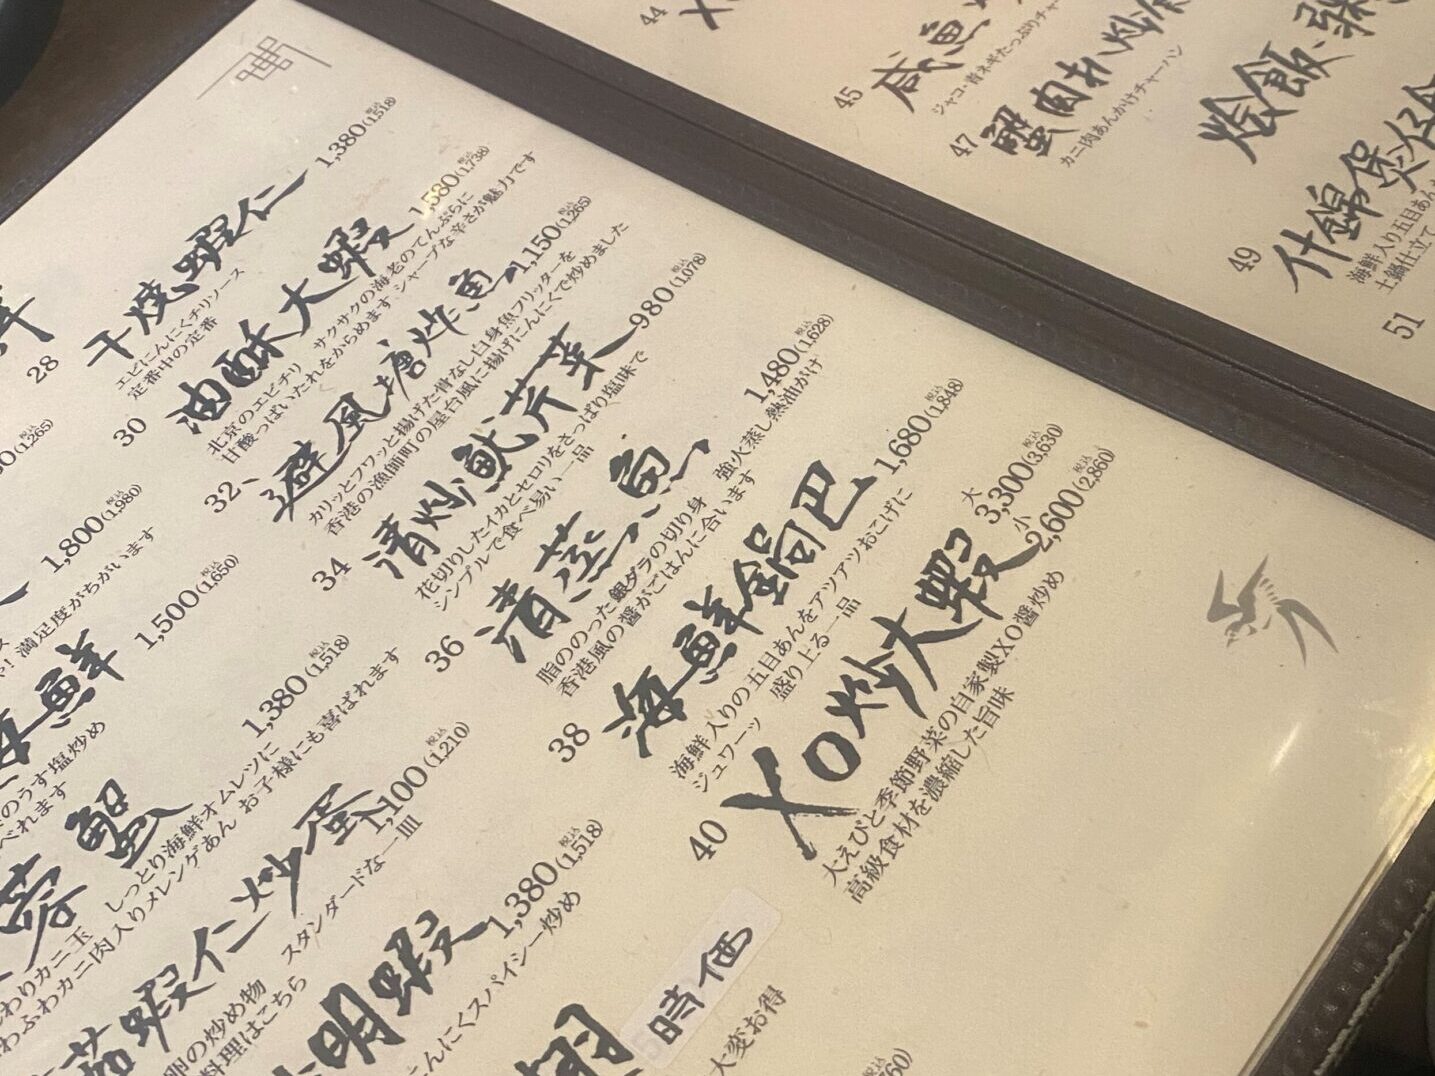 28
干燒蝦仁 1,380(1,518)税込
エビにんにくチリソース
定番中の定番
30
油酥大蝦 1,580(1,738)税込
北京のエビチリ サクサクの海老のてんぷらに
甘酸っぱいたれをからめます シャープな辛さが魅力です
32
避風塘炸魚 1,150(1,265)税込
カリッとフワッと揚げた骨なし白身魚フリッターを
香港の漁師町の屋台風に揚げにんにくで炒めました
34
清炒魷芹菜 980(1,078)税込
花切りしたイカとセロリをさっぱり塩味で
シンプルで食べ易い一品
36
清蒸魚 1,480(1,628)税込
脂ののった銀ダラの切り身 強火蒸し熱油がけ
香港風の醤がごはんに合います
38
海鮮鍋巴 1,680(1,848)税込
海鮮入りの五目あんをアツアツおこげに
ジュワーッ 盛り上る一品
40
XO炒大蝦 大 3,300(3,630)税込
小 2,600(2,860)税込
大えびと季節野菜の自家製XO醤炒め
高級食材を濃縮した旨味
1,800(1,980)税込
満足度がちがいます
1,500(1,650)税込
海鮮
のうす塩炒め
べれます
1,380(1,518)税込
蟹
しっとり海鮮オムレツに
わりカニ玉
わふわカニ肉入りメレンゲあん お子様にも喜ばれます
茄蝦仁炒蛋 1,100(1,210)税込
卵の炒め物 スタンダードな一皿
料理はこちら
明蝦 1,380(1,518)税込
にんにくスパイシー炒め
時価
大変お得
44
45
咸魚
ジャコ・青ネギたっぷりチャー
47
蟹肉扒炒
カニ肉あんかけチャーハン
烩飯
49
什錦煲仔
海鮮入り五目あん
土鍋仕立て
51